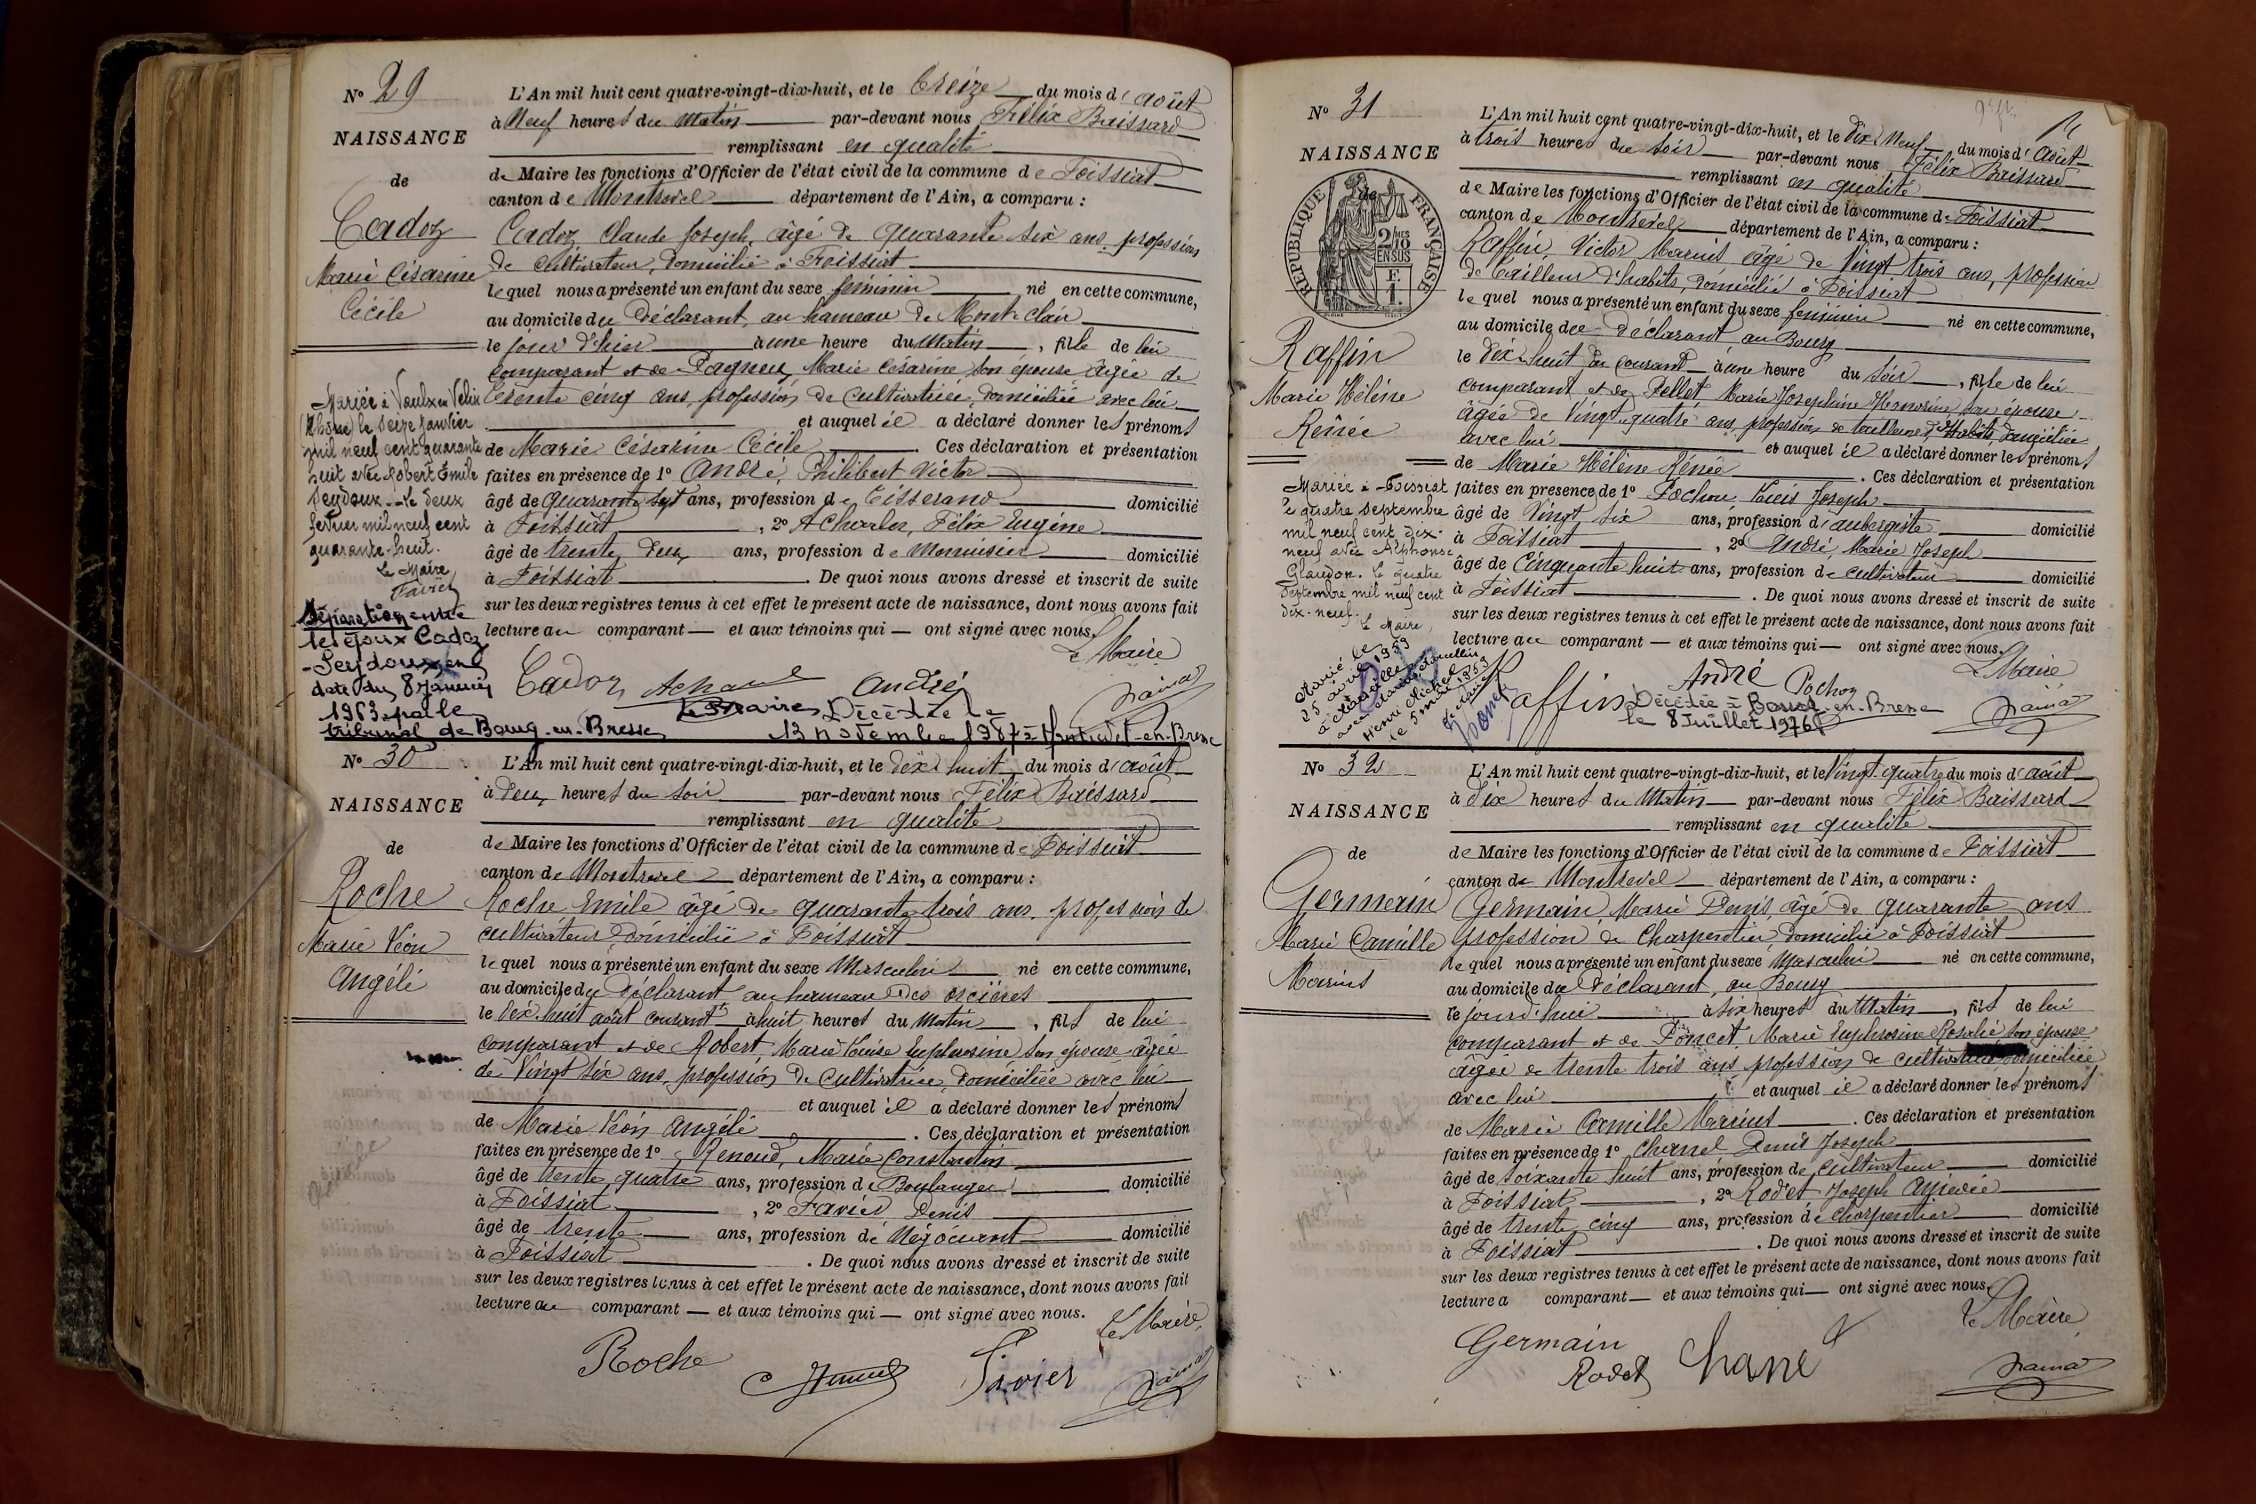 N° 29
NAISSANCE
de
Cadoz
Marie Césarine
Cécile
L'An mil huit cent quatre-vingt-dix-huit, et le treize du mois d'août
à Neuf heures du Matin par-devant nous Félix Baissard
remplissant en qualité
de Maire les fonctions d'Officier de l'état civil de la commune de Foissiat
canton de Montrevel département de l'Ain, a comparu :
Cadoz Claude Joseph, âgé de quarante six ans profession
de cultivateur, domicilié à Foissiat
lequel nous a présenté un enfant du sexe féminin né en cette commune,
au domicile du Déclarant, au hameau de Mont-clair
le jour d'hier à une heure du Matin, fille de lui
comparant et de Pagneux Marie Césarine son épouse âgée de
trente cinq ans, profession de cultivatrice, domiciliée avec lui
et auquel il a déclaré donner les prénoms
de Marie Césarine Cécile. Ces déclaration et présentation
faites en présence de 1° André, Philibert Victor
âgé de quarante sept ans, profession de Tisserand domicilié
à Foissiat, 2° Félix Eugène
âgé de trente deux ans, profession de Menuisier domicilié
à Foissiat. De quoi nous avons dressé et inscrit de suite
sur les deux registres tenus à cet effet le présent acte de naissance, dont nous avons fait
lecture au comparant et aux témoins qui ont signé avec nous.
Le Maire
Cadoz André
Mariée à Vaulx en Velin
Rhône le seize janvier
mil neuf cent quarante
huit avec Robert Emile
Seydoux. Le deux
février mil neuf cent
quarante-huit.
Le Maire,
Favier
Séparation entre
les époux Cadoz
-Seydoux en
date du 8 Janvier
1963 par le
tribunal de Bourg-en-Bresse
Le Maire
Décédée le
13 novembre 1987 à Montrevel-en-Bresse
N° 30
NAISSANCE
de
Roche
Marie Léon
Angéli
L'An mil huit cent quatre-vingt-dix-huit, et le dix huit du mois d'août
à deux heures du soir par-devant nous Félix Baissard
remplissant en qualité
de Maire les fonctions d'Officier de l'état civil de la commune de Foissiat
canton de Montrevel département de l'Ain, a comparu :
Roche Emile âgé de quarante trois ans, profession de
cultivateur domicilié à Foissiat
lequel nous a présenté un enfant du sexe Masculin né en cette commune,
au domicile du déclarant au hameau Des orcières
le dix huit août courant à huit heures du Matin, fils de lui
comparant et de Robert Marie Louise Euphrosine son épouse âgée
de Vingt six ans, profession de cultivatrice, domiciliée avec lui
et auquel il a déclaré donner les prénoms
de Marie Léon Angéli. Ces déclaration et présentation
faites en présence de 1° Renoud, Marie Constantin
âgé de trente quatre ans, profession de Boulanger domicilié
à Foissiat, 2° Favier Denis
âgé de trente ans, profession de Négociant domicilié
à Foissiat. De quoi nous avons dressé et inscrit de suite
sur les deux registres tenus à cet effet le présent acte de naissance, dont nous avons fait
lecture au comparant et aux témoins qui ont signé avec nous.
Le Maire,
Roche Favier
N° 31
NAISSANCE
de
RÉPUBLIQUE FRANÇAISE
2/10
EN SUS
Raffin
Marie Hélène
Rénée
L'An mil huit cent quatre-vingt-dix-huit, et le Dix Neuf du mois d'août
à trois heures du soir par-devant nous Félix Baissard
remplissant en qualité
de Maire les fonctions d'Officier de l'état civil de la commune de Foissiat
canton de Montrevel département de l'Ain, a comparu :
Raffin, Victor Marius âgé de Vingt trois ans, profession
de Tailleur d'habits, domicilié à Foissiat
lequel nous a présenté un enfant du sexe féminin né en cette commune,
au domicile du déclarant au Bourg
le Dix huit du courant à une heure du soir, fille de lui
comparant et de Pellet Marie Josephine Honorine son épouse
âgée de Vingt quatre ans, profession de tailleuse d'Habits, domiciliée
avec lui et auquel il a déclaré donner les prénoms
de Marie Hélène Rénée. Ces déclaration et présentation
faites en présence de 1° Pochon Louis Joseph
âgé de Vingt six ans, profession d'aubergiste domicilié
à Foissiat, 2° André, Marie Joseph
âgé de Cinquante huit ans, profession de cultivateur domicilié
à Foissiat. De quoi nous avons dressé et inscrit de suite
sur les deux registres tenus à cet effet le présent acte de naissance, dont nous avons fait
lecture au comparant et aux témoins qui ont signé avec nous.
Le Maire
Raffin André Pochon
Mariée à Foissiat
le quatre septembre
mil neuf cent dix-
neuf avec Alphonse
Glaudon. Le quatre
Septembre mil neuf cent
dix-neuf.
Le Maire,
Marié le
25 avril 1959
à Marseille
Henri Michel
Décédée à Bourg-en-Bresse
le 8 Juillet 1976
N° 32
NAISSANCE
de
Germain
Marie Camille
Marius
L'An mil huit cent quatre-vingt-dix-huit, et le Vingt quatre du mois d'août
à Dix heures du Matin par-devant nous Félix Baissard
remplissant en qualité
de Maire les fonctions d'Officier de l'état civil de la commune de Foissiat
canton de Montrevel département de l'Ain, a comparu :
Germain, Marie Denis, âgé de quarante ans
profession de Charpentier domicilié à Foissiat
lequel nous a présenté un enfant du sexe Masculin né en cette commune,
au domicile du Déclarant, au Bourg
le jourd'hui à six heures du Matin, fils de lui
comparant et de Poncet, Marie Euphrosine Rosalie son épouse
âgée de trente trois ans profession de cultivatrice domiciliée
avec lui et auquel il a déclaré donner les prénoms
de Marie Camille Marius. Ces déclaration et présentation
faites en présence de 1° Charnel Denis Joseph
âgé de soixante huit ans, profession de cultivateur domicilié
à Foissiat, 2° Rodet Joseph Amédée
âgé de trente cinq ans, profession de charpentier domicilié
à Foissiat. De quoi nous avons dressé et inscrit de suite
sur les deux registres tenus à cet effet le présent acte de naissance, dont nous avons fait
lecture a comparant et aux témoins qui ont signé avec nous.
Le Maire
Germain
Rodet